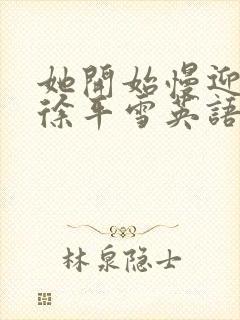 她開始慢迎
徐平雪英語
林泉隐士